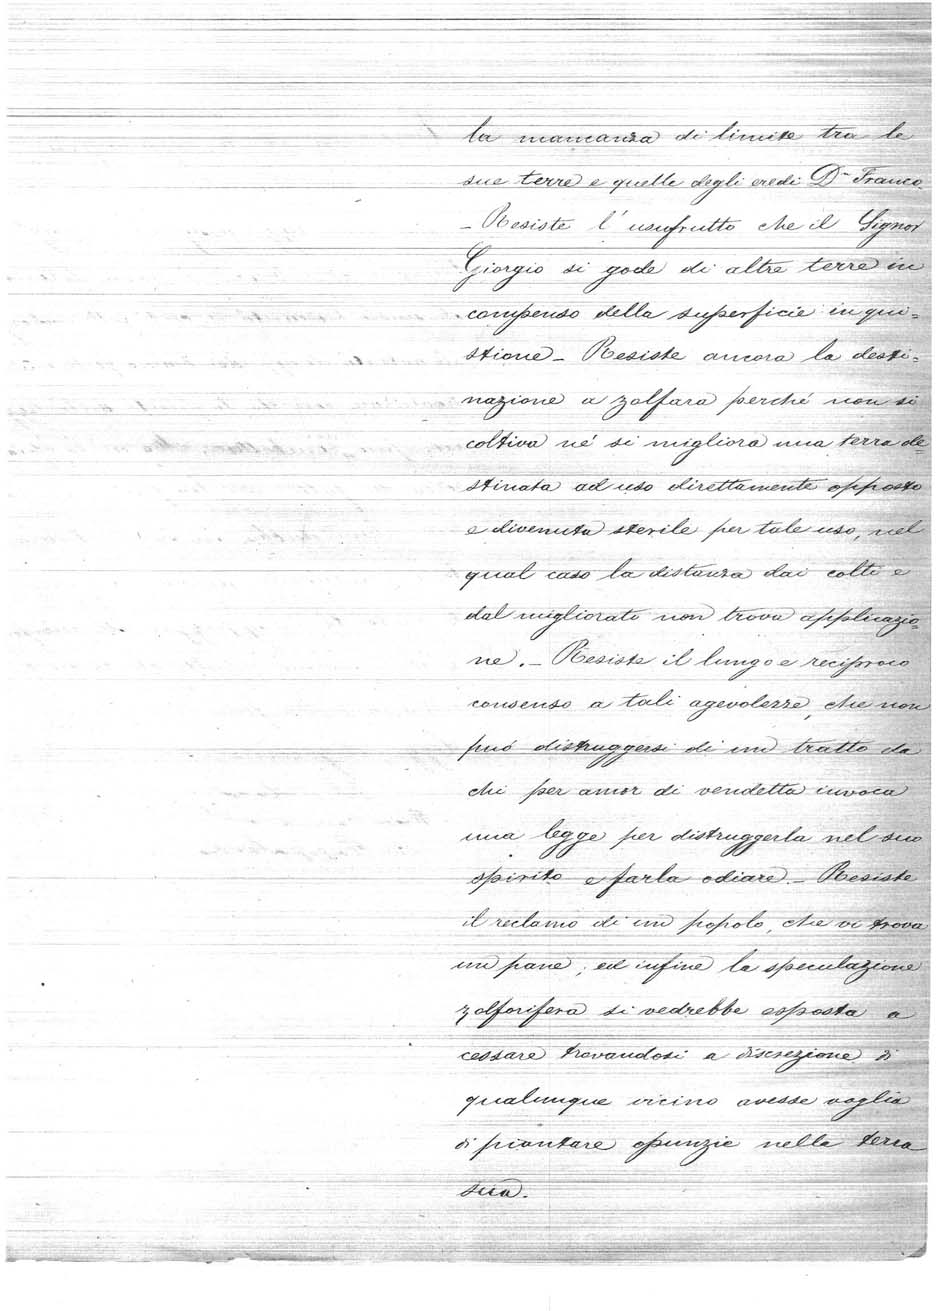 la mancanza di limite tra le
sue terre e quelle degli eredi Dn Franco.
– Resiste l'usufrutto che il Signor
Giorgio si gode di altre terre in
compenso della superficie in qui=
stione – Resiste ancora la desti=
nazione a zolfara perché non si
coltiva né si migliora una terra de=
stinata ad uso direttamente opposto
e divenuta sterile per tale uso, nel
qual caso la distanza dai colti e
dal migliorato non trova applicazio=
ne. – Resiste il lungo e reciproco
consenso a tali agevolezze, che non
può distruggersi di un tratto da
chi per amor di vendetta invoca
una legge per distruggerla nel suo
spirito e farla odiare. – Resiste
il reclamo di un popolo, che vi trova
un pane; ed infine la speculazione
zolforifera si vedrebbe esposta a
cessare trovandosi a discrezione di
qualunque vicino avesse voglia
di piantare opunzie nella terra
sua.